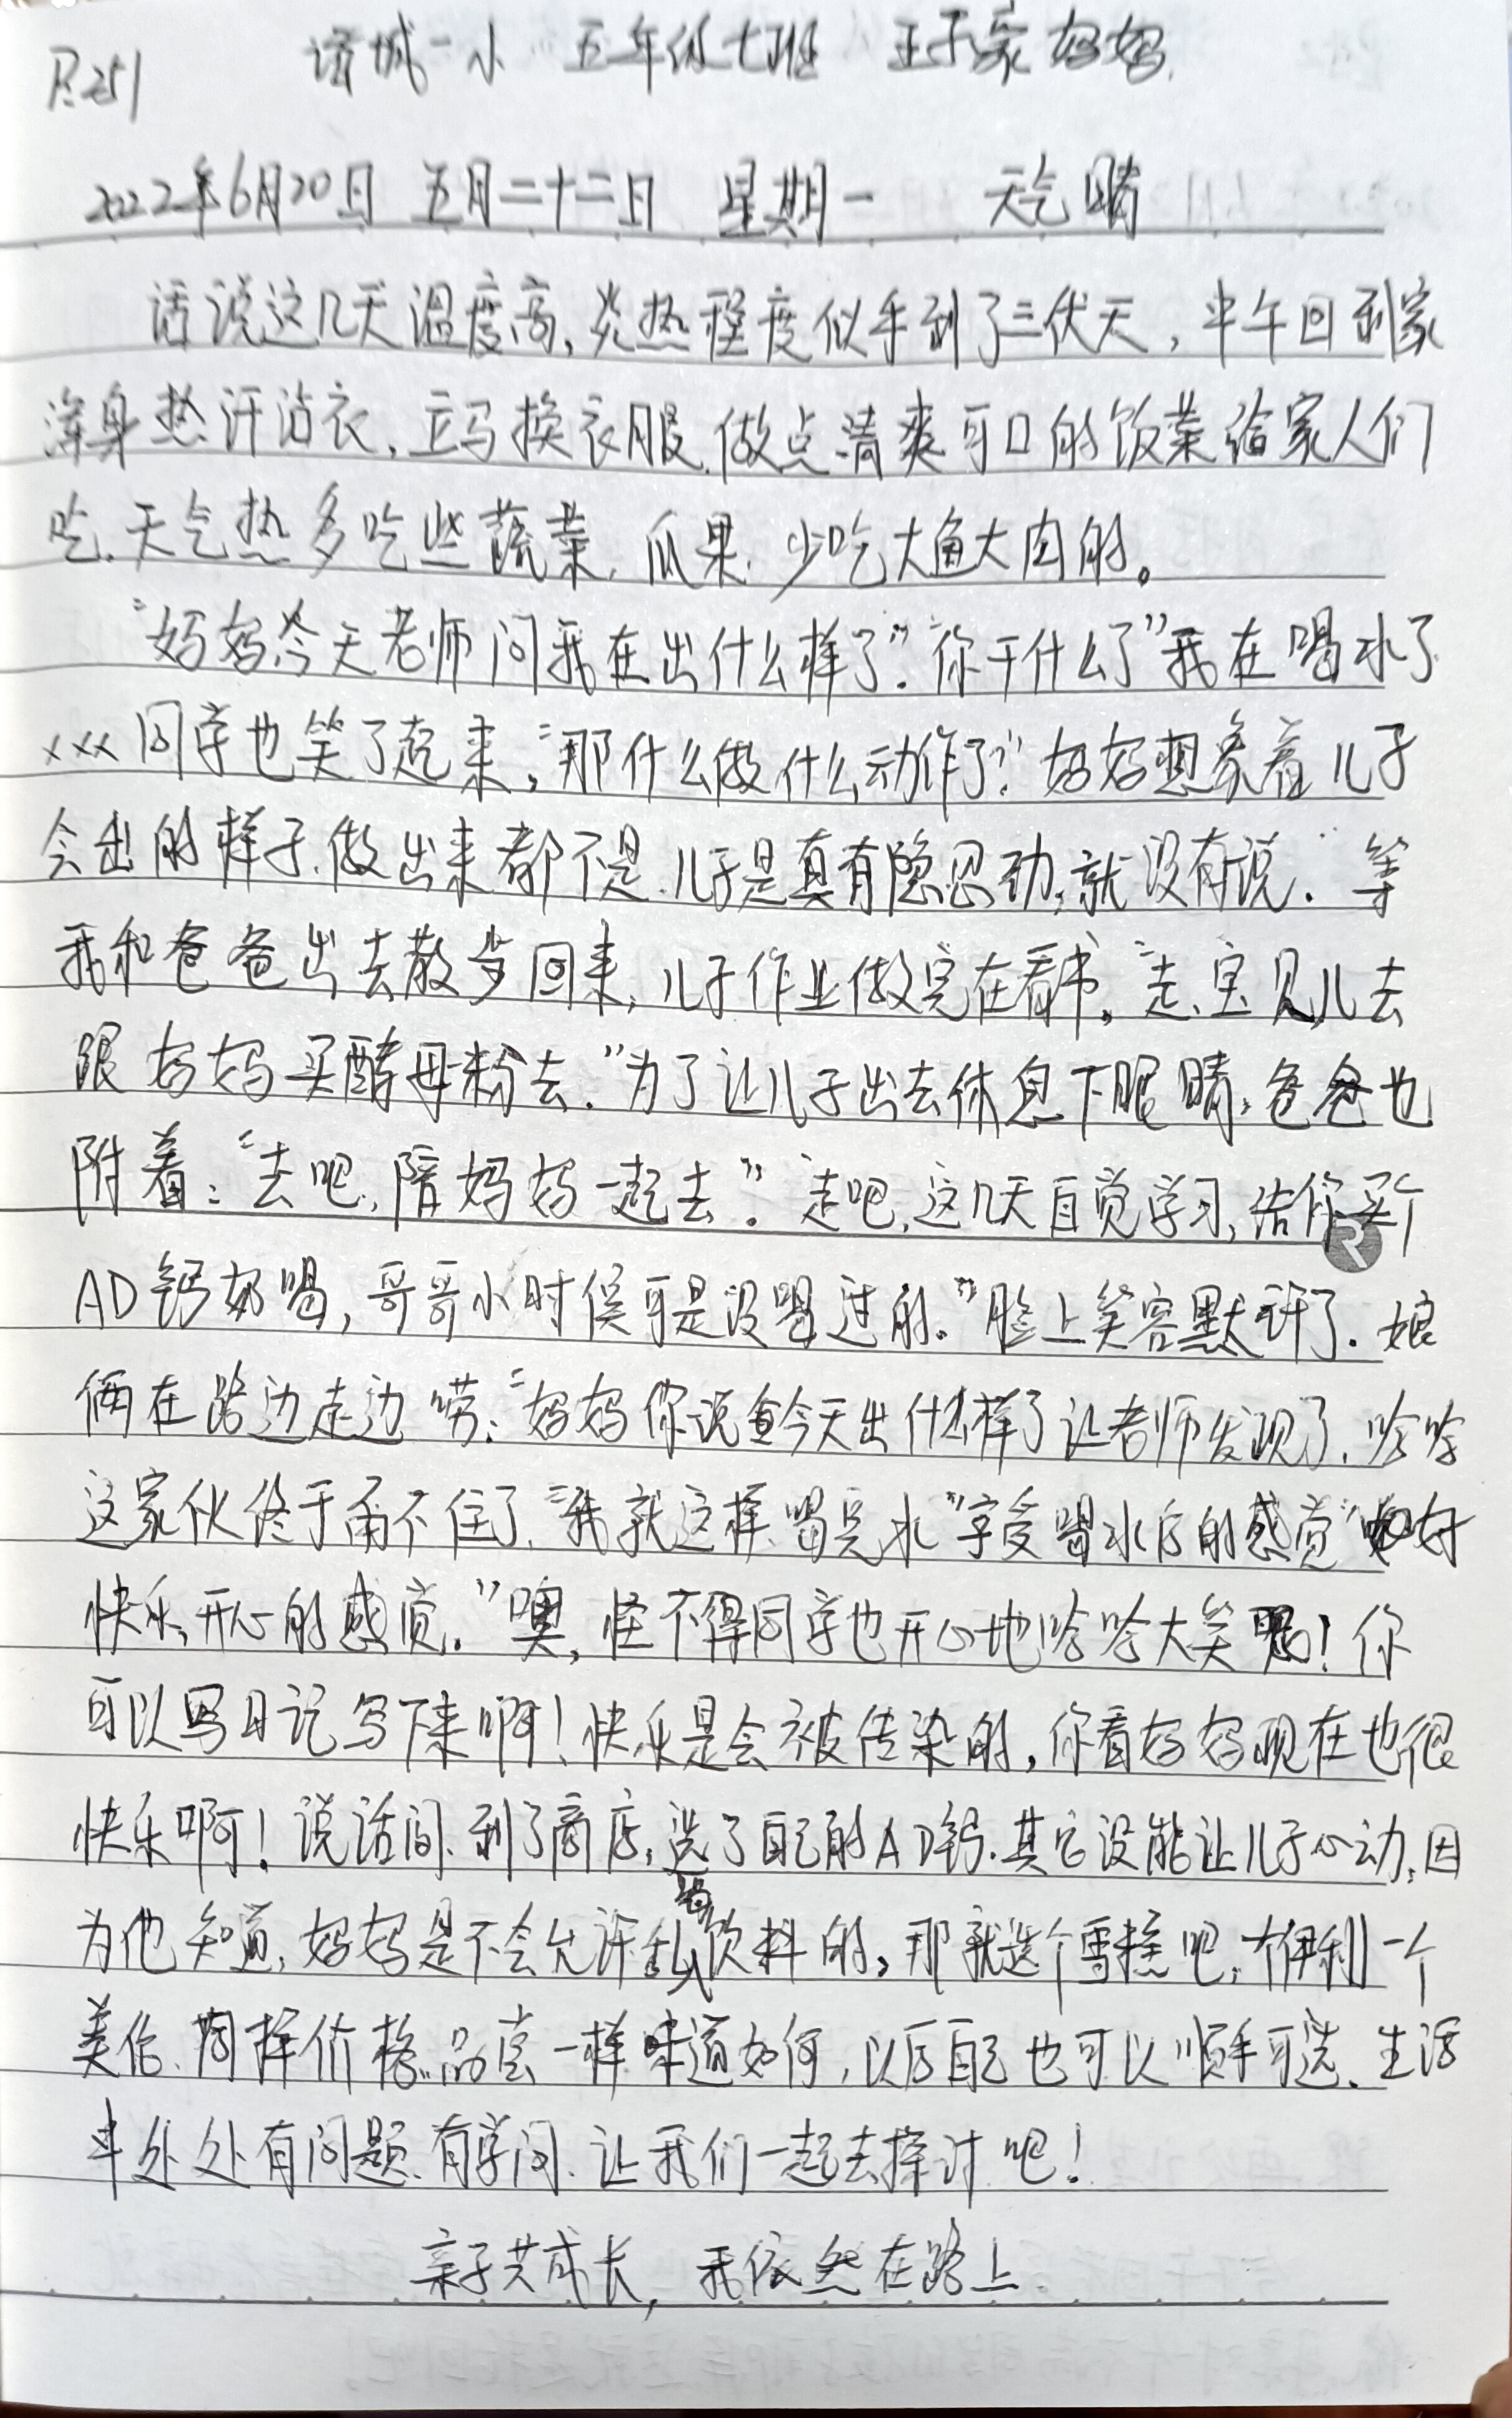 P.251 诸城一小 五年级七班 王子豪妈妈
2022年6月20日 五月二十二日 星期一 天气晴
话说这几天温度高,炎热程度似乎到了三伏天,中午回到家
浑身热汗沾衣,立马换衣服,做点清爽可口的饭菜给家人们
吃.天气热多吃些蔬菜,瓜果,少吃大鱼大肉的。
“妈妈今天老师问我在出什么样了”.“你干什么了”我在喝水了
xxx同学也笑了起来,“那什么做什么动作了?”妈妈想象着儿子
会出的样子,做出来都不是.儿子是真有隐忍劲,就没有说.等
我和爸爸出去散步回来,儿子作业做完在看书。“走,宝贝儿去
跟妈妈买酵母粉去.”为了让儿子出去休息下眼睛,爸爸也
附着:“去吧,陪妈妈一起去”.“走吧,这几天自觉学习,给你买个
AD钙奶喝,哥哥小时候可是没喝过的。”脸上笑容默许了.娘
俩在路边走边唠:“妈妈你说我今天出什么样了让老师发现了,哈哈
这家伙终于耐不住了.“我就这样,喝完水”享受喝水后的感觉“好
快乐,开心的感觉.”噢,怪不得同学也开心地哈哈大笑呢!你
可以写日记写下来啊!快乐是会被传染的,你看妈妈现在也很
快乐啊!说话间,到了商店,选了自己的AD钙.其它没能让儿子心动,因
为他知道,妈妈是不会允许乱喝饮料的,那就选个雪糕吧,一个伊利一个
美伦.同样价格.品尝一样味道如何,以后自己也可以顺手可选.生活
中处处有问题.有学问.让我们一起去探讨吧!
亲子共成长,我依然在路上.